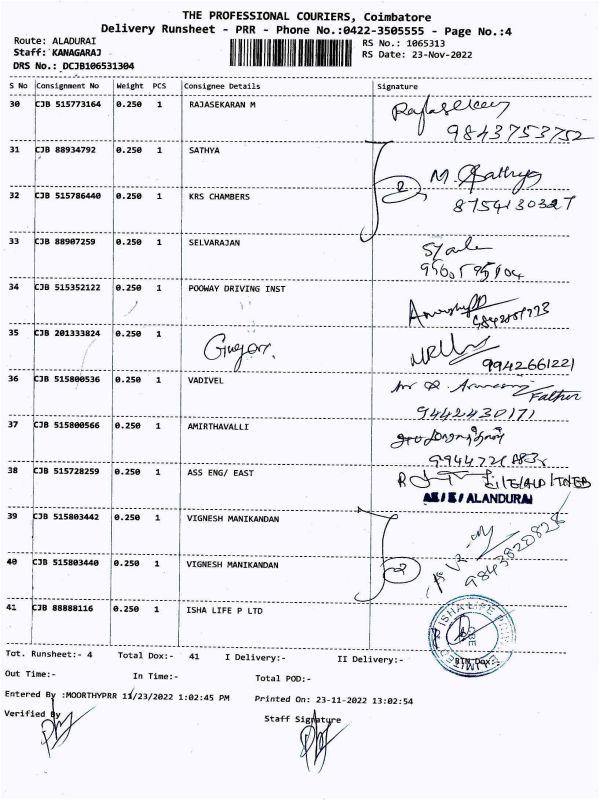 THE PROFESSIONAL COURIERS, Coimbatore
Delivery Runsheet - PRR - Phone No.:0422-3505555 - Page No.:4
Route: ALADURAI
RS No.: 1065313
Staff: KANAGARAJ
RS Date: 23-Nov-2022
DRS No.: DCJB106531304
S No Consignment No Weight PCS Consignee Details Signature
30 CJB 515773164 0.250 1 RAJASEKARAN M
9843753752
31 CJB 88934792 0.250 1 SATHYA
2 M. Sathya
32 CJB 515786440 0.250 1 KRS CHAMBERS
8754130327
33 CJB 88907259 0.250 1 SELVARAJAN
34 CJB 515352122 0.250 1 POOWAY DRIVING INST
35 CJB 201333824 0.250 1
9942661221
36 CJB 515800536 0.250 1 VADIVEL
Father
9442430171
37 CJB 515800566 0.250 1 AMIRTHAVALLI
38 CJB 515728259 0.250 1 ASS ENG/ EAST
AE/E/ALANDURAI
39 CJB 515803442 0.250 1 VIGNESH MANIKANDAN
2
40 CJB 515803440 0.250 1 VIGNESH MANIKANDAN
9843820828
41 CJB 88888116 0.250 1 ISHA LIFE P LTD
ISHA LIFE PRIVATE LIMITED
Tot. Runsheet:- 4 Total Dox:- 41 I Delivery:- II Delivery:-
Out Time:- In Time:- Total POD:-
Entered By :MOORTHYPRR 11/23/2022 1:02:45 PM Printed On: 23-11-2022 13:02:54
Verified By Staff Signature